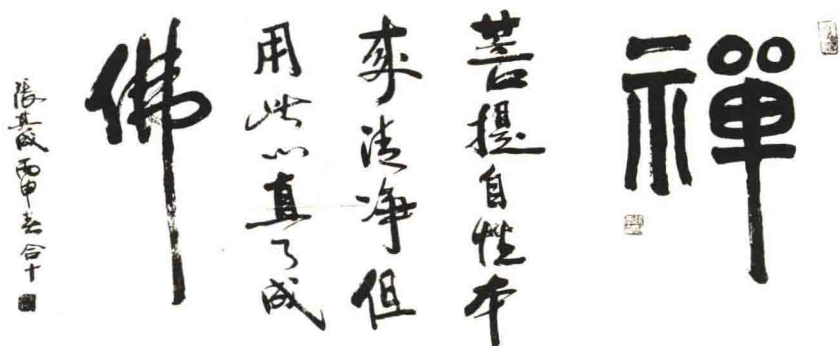 禪
菩提自性本
來清净但
用此心直了成
佛
張其成丙申春合十